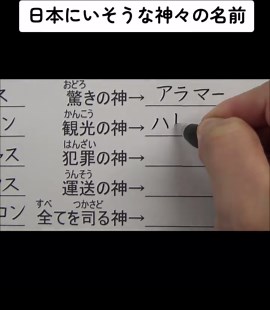 日本にいそうな神々の名前
ス
おどろ
驚きの神→ アラマー
かんこう
ン 観光の神→ ハ
はんざい
ルス 犯罪の神→
うんそう
ウス 運送の神→
すべ つかさど
コン 全てを司る神→